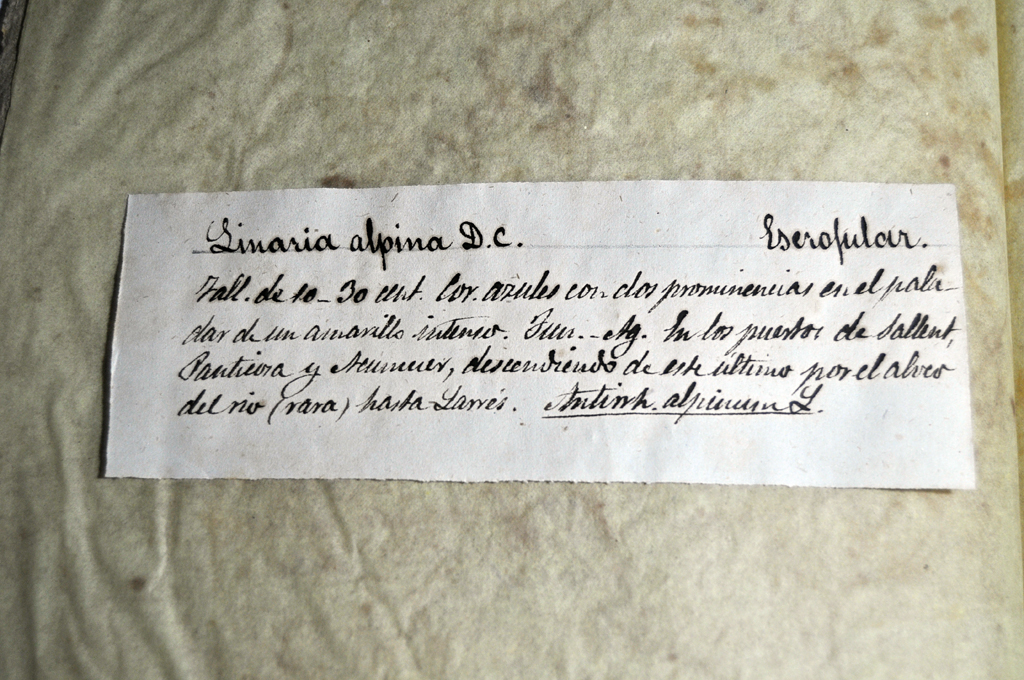 Linaria alpina D.C. Escrofular.
Tall. de 10-30 cent. Cor. azules con dos prominencias en el pala-
dar de un amarillo intenso. Jun.-Ag. En los puertos de Sallent,
Panticosa y Acumuer, descendiendo de este último por el alveo
del rio (rara) hasta Larrés. Antirrh. alpinum L.